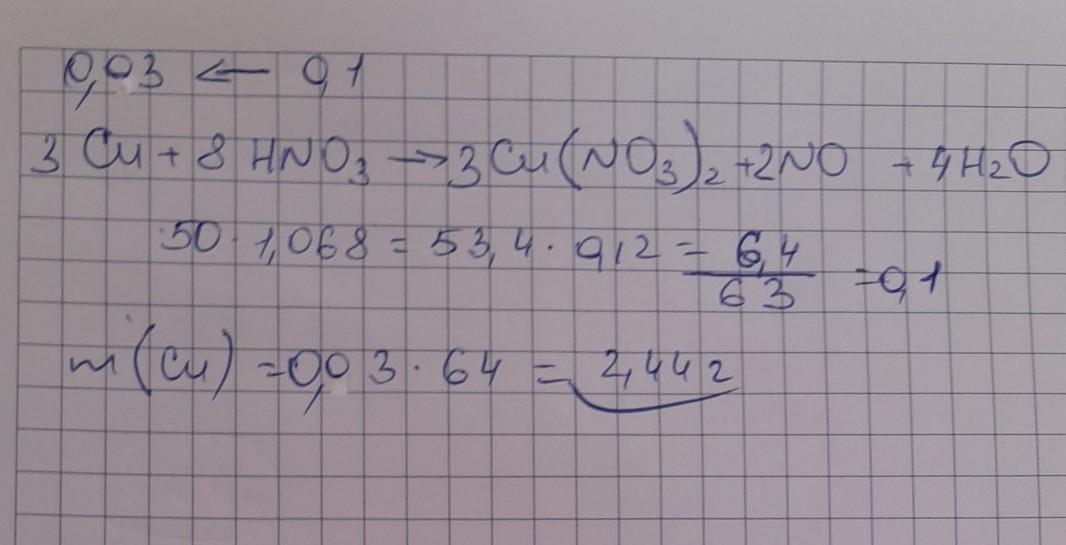 0,03 ← 0,1
3 Cu + 8 HNO3 → 3 Cu(NO3)2 + 2NO + 4H2O
50 · 1,068 = 53,4 · 0,12 = 6,4 / 63 = 0,1
m(Cu) = 0,03 · 64 = 2,442